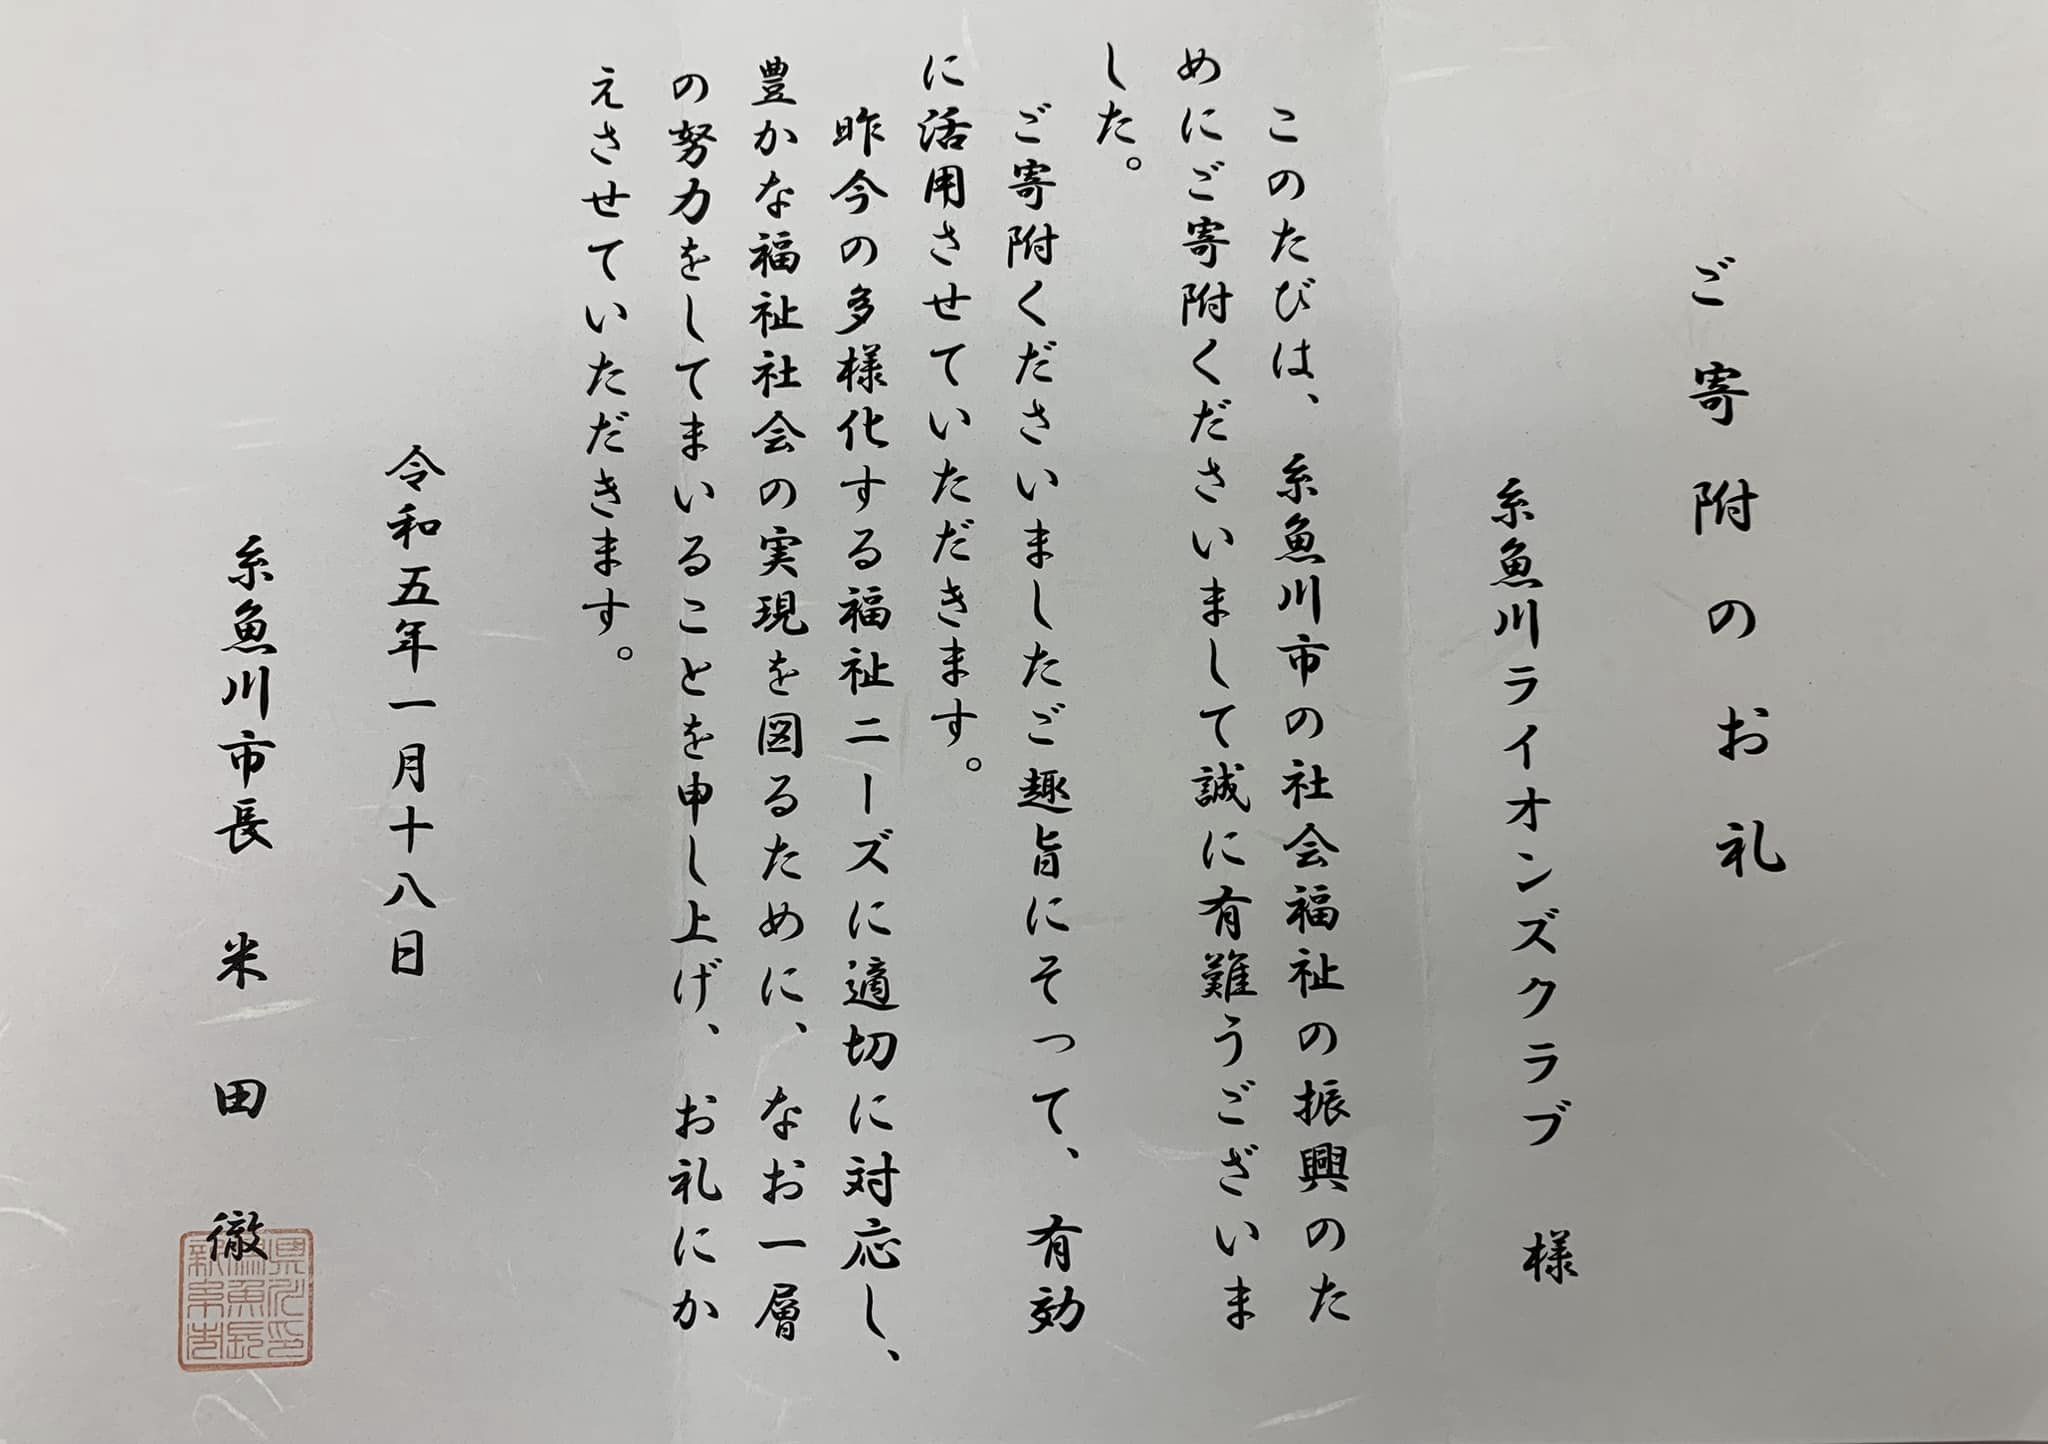 ご寄附のお礼
糸魚川ライオンズクラブ 様
このたびは、糸魚川市の社会福祉の振興のた
めにご寄附くださいまして誠に有難うございま
した。
ご寄附くださいましたご趣旨にそって、有効
に活用させていただきます。
昨今の多様化する福祉ニーズに適切に対応し、
豊かな福祉社会の実現を図るために、なお一層
の努力をしてまいることを申し上げ、お礼にか
えさせていただきます。
令和五年一月十八日
糸魚川市長 米田徹